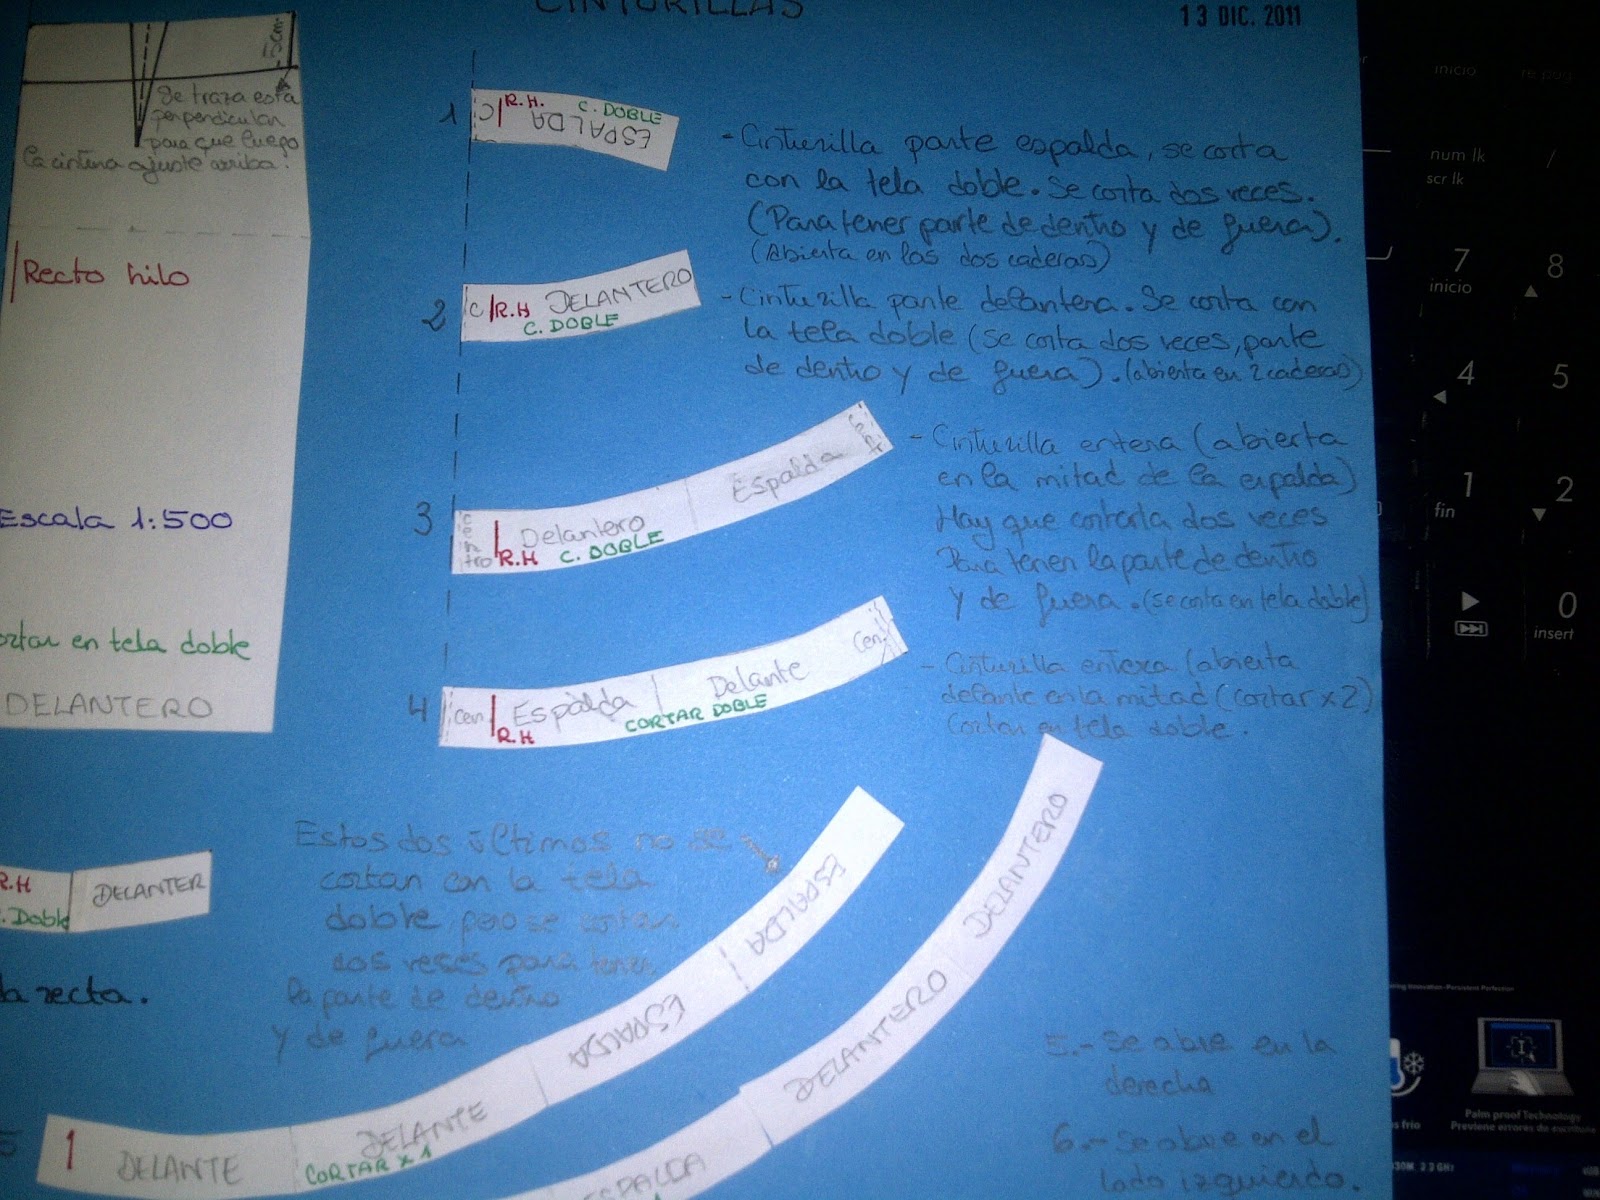 CINTURILLAS
13 DIC. 2011
15cm
Se traza esta
perpendicular
para que luego
la cintura ajuste arriba.
Recto hilo
Escala 1:500
cortar en tela doble
DELANTERO
R.H
C. Doble
DELANTER
la recta.
1
C
R.H.
C. DOBLE
ESPALDA
- Cinturilla parte espalda, se corta
con la tela doble. Se corta dos veces.
(Para tener parte de dentro y de fuera).
(Abierta en las dos caderas)
2
C
R.H
DELANTERO
C. DOBLE
- Cinturilla parte delantera. Se corta con
la tela doble (se corta dos veces, parte
de dentro y de fuera). (abierta en 2 caderas)
3
centro
R.H
Delantero
C. DOBLE
Espalda
- Cinturilla entera (abierta
en la mitad de la espalda)
Hay que cortarla dos veces
Para tener la parte de dentro
y de fuera. (se corta en tela doble)
4
cen.
R.H
Espalda
Delante
CORTAR DOBLE
cen.
- Cinturilla entera (abierta
delante en la mitad (cortar x2)
Cortar en tela doble.
Estos dos últimos no se
cortan con la tela
doble pero se cortan
dos veses para tener
la parte de dentro
y de fuera
5
1
DELANTE
DELANTE
CORTAR x 1
ESPALDA
ESPALDA
ESPALDA
DELANTERO
DELANTERO
5.- Se abre en la
derecha
6.- Se abre en el
lado izquierdo.
inicio
re pág
num lk
scr lk
/
7
inicio
8
4
5
1
fin
2
0
insert
Palm proof Technology
Previene errores de escritura
s frío